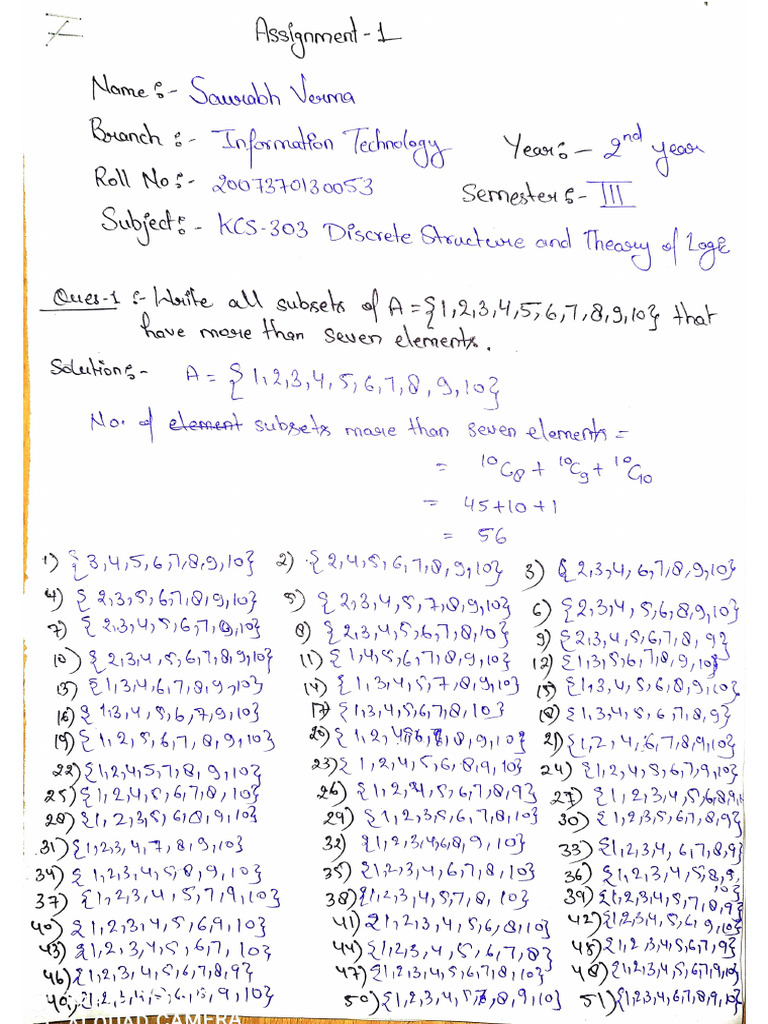 Assignment-1
Name:- Saurabh Verma
Branch:- Information Technology Year:- 2nd year
Roll No:- 2007370130053 Semester:- III
Subject:- KCS-303 Discrete Structure and Theory of Logic
Ques-1:- Write all subsets of A={1,2,3,4,5,6,7,8,9,10} that
have more than seven elements.
Solution:- A = {1,2,3,4,5,6,7,8,9,10}
No. of element subsets more than seven elements =
= 10C8 + 10C9 + 10C10
= 45+10+1
= 56
1) {3,4,5,6,7,8,9,10} 2) {2,4,5,6,7,8,9,10} 3) {2,3,4,6,7,8,9,10}
4) {2,3,5,6,7,8,9,10} 5) {2,3,4,5,7,8,9,10} 6) {2,3,4,5,6,8,9,10}
7) {2,3,4,5,6,7,9,10} 8) {2,3,4,5,6,7,8,10} 9) {2,3,4,5,6,7,8,9}
10) {2,3,4,5,6,7,8,9,10} 11) {1,4,5,6,7,8,9,10} 12) {1,3,5,6,7,8,9,10}
13) {1,3,4,6,7,8,9,10} 14) {1,3,4,5,7,8,9,10} 15) {1,3,4,5,6,8,9,10}
16) {1,3,4,5,6,7,9,10} 17) {1,3,4,5,6,7,8,10} 18) {1,3,4,5,6,7,8,9}
19) {1,2,5,6,7,8,9,10} 20) {1,2, 8,9,10} 21) {1,2,4,6,7,8,9,10}
22) {1,2,4,5,7,8,9,10} 23) {1,2,4,5,6,8,9,10} 24) {1,2,4,5,6,7,9,10}
25) {1,2,4,5,6,7,8,10} 26) {1,2,4,5,6,7,8,9} 27) {1,2,3,4,5,6,8,9,1
28) {1,2,3,5,6,8,9,10} 29) {1,2,3,5,6,7,8,10} 30) {1,2,3,5,6,7,8,9}
31) {1,2,3,4,7,8,9,10} 32) {1,2,3,4,6,8,9,10} 33) {1,2,3,4,6,7,8,9}
34) {1,2,3,4,5,8,9,10} 35) {1,2,3,4,6,7,8,10} 36) {1,2,3,4,5,8,9,10}
37) {1,2,3,4,5,7,9,10} 38) {1,2,3,4,5,7,8,10} 39) {1,2,3,4,5,7,8,9}
40) {1,2,3,4,5,6,9,10} 41) {1,2,3,4,5,6,8,10} 42) {1,2,3,4,5,6,9,10}
43) {1,2,3,4,5,6,7,10} 44) {1,2,3,4,5,6,7,8} 45) {1,2,3,4,5,6,7,9}
46) {1,2,3,4,5,6,7,8,9} 47) {1,2,3,4,5,6,7,8,10} 48) {1,2,3,4,5,6,7,9,10}
49) {1,2,3,4,5,6,8,9,10} 50) {1,2,3,4,5,7,8,9,10} 51) {1,2,3,4,6,7,8,9,10}
QUAD CAMERA